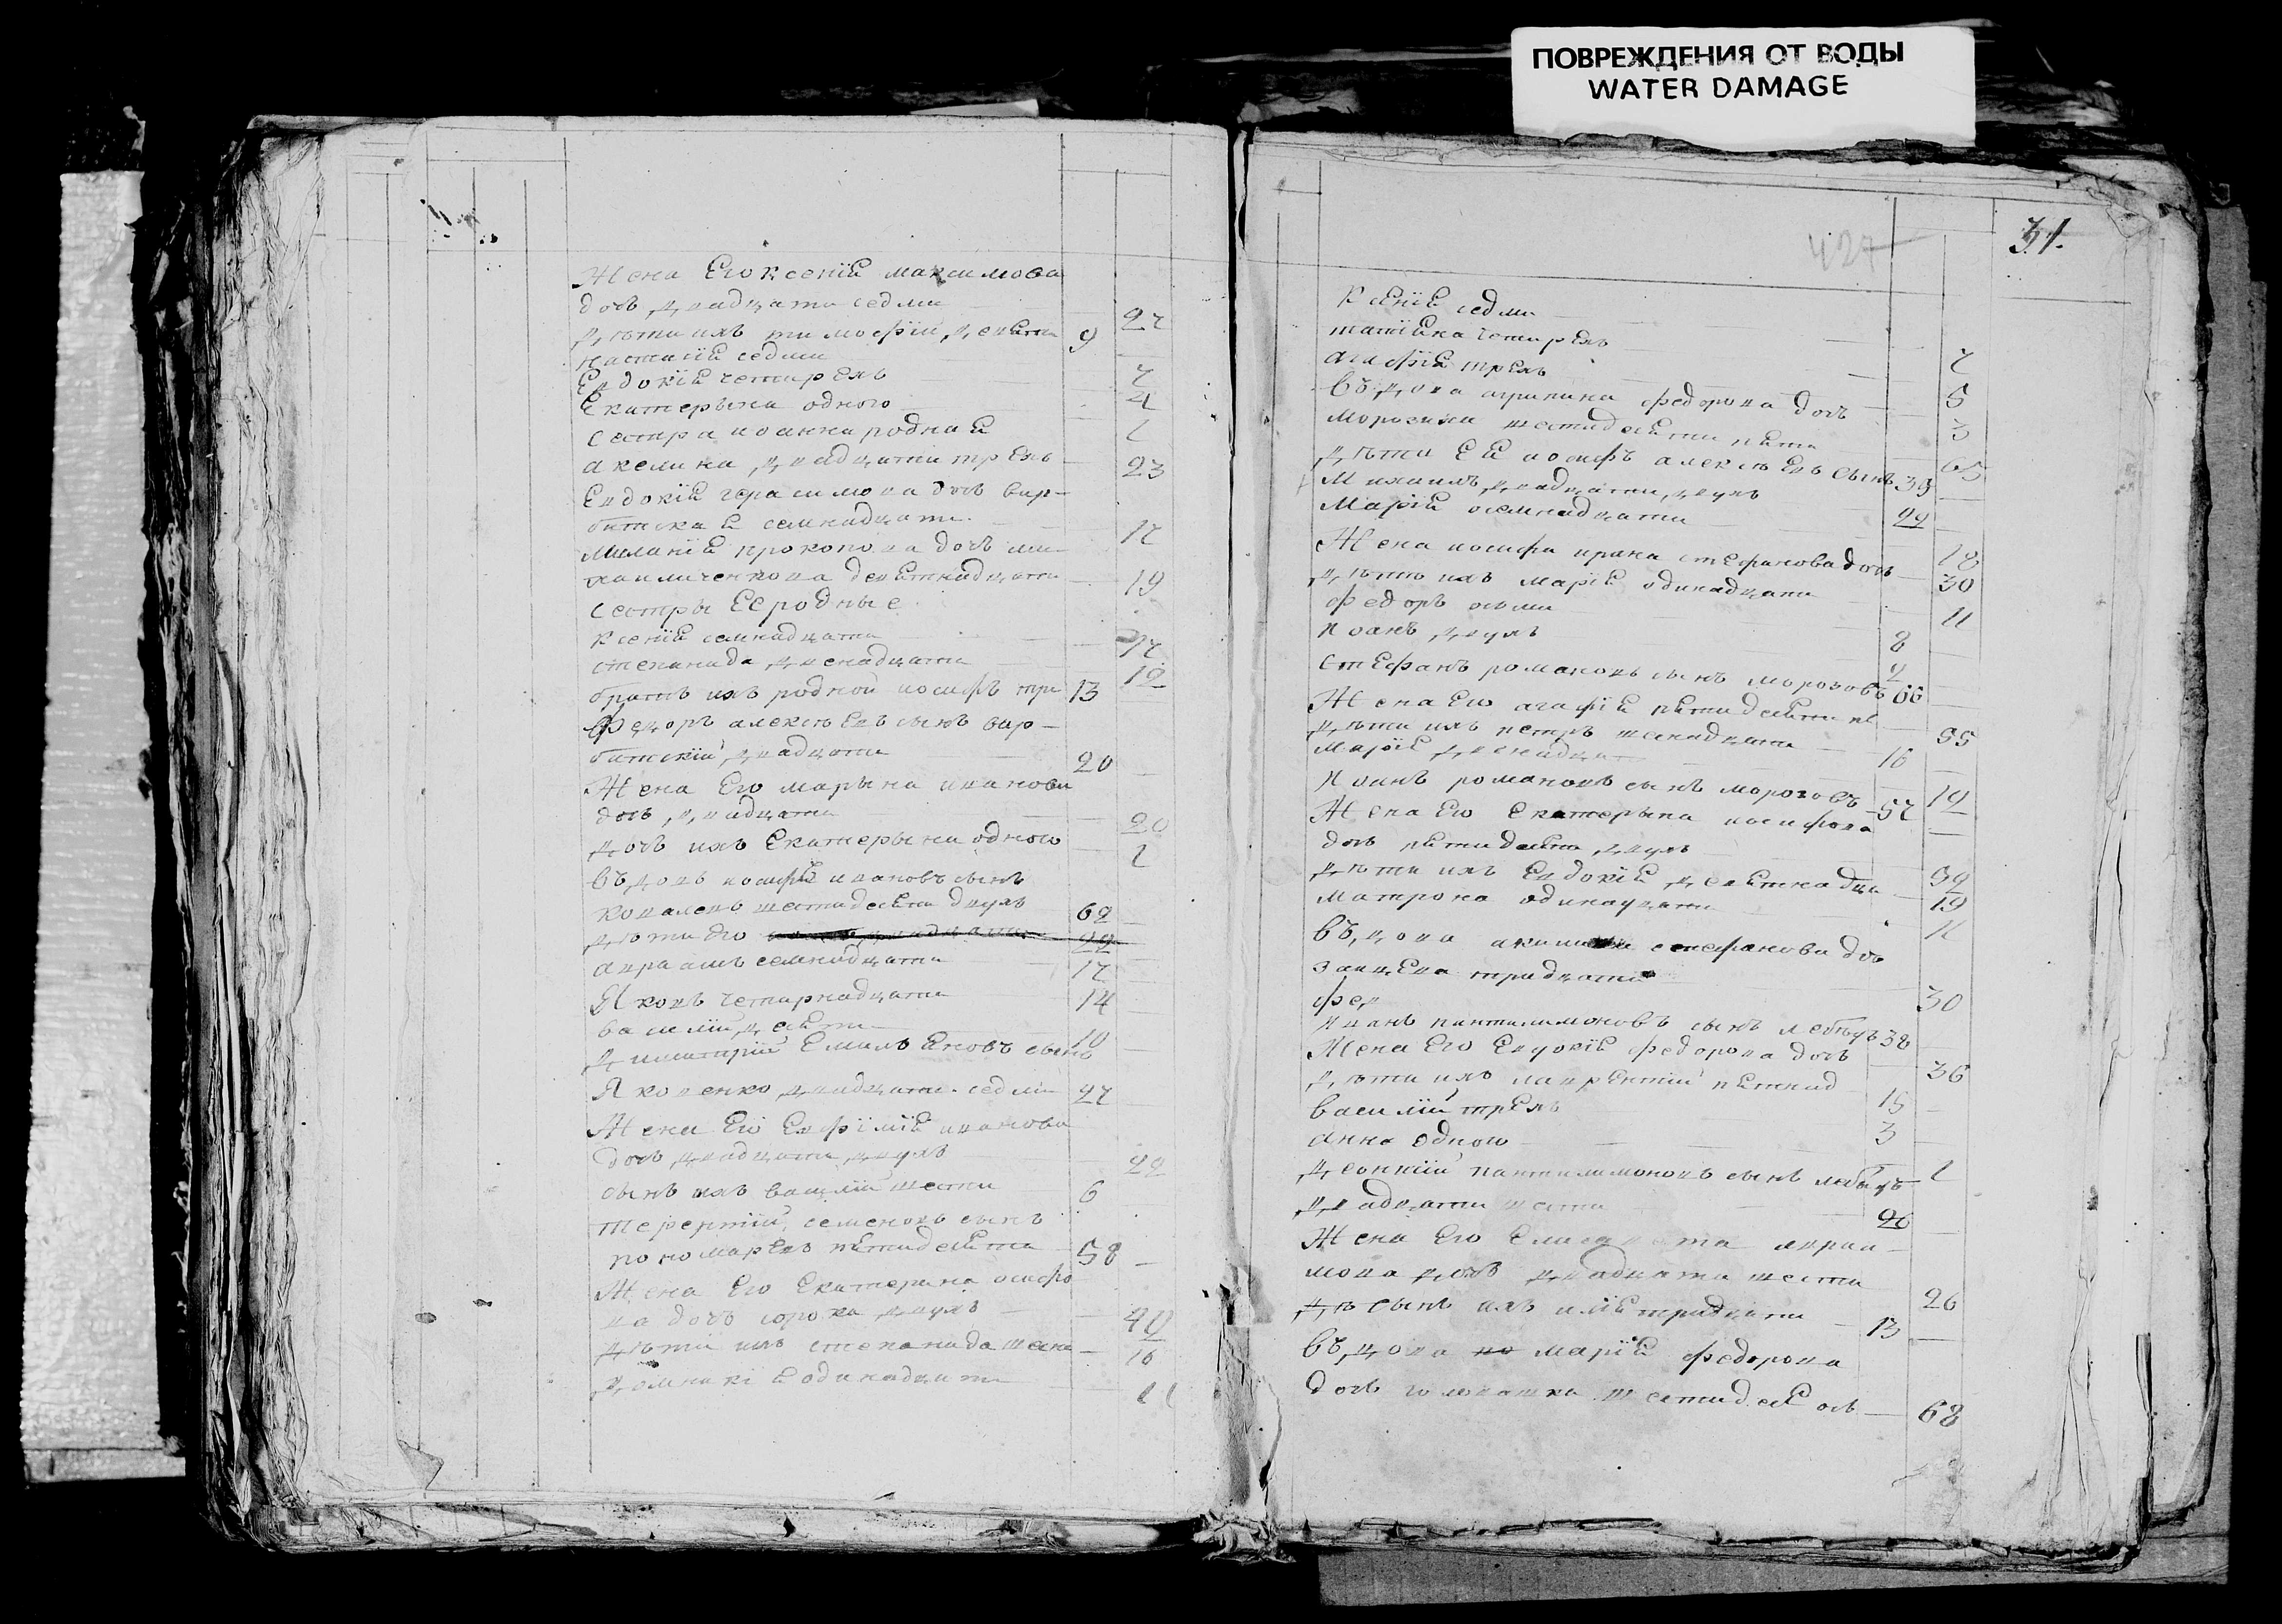 ПОВРЕЖДЕНИЯ ОТ ВОДЫ
WATER DAMAGE
Жена Его ксенїя максимова
дочь двадцати седми 27
дѣти ихъ тимофїй девяти 9
настасїя седми 7
Евдокїя четирехъ 4
Екатерына одного 1
сестра иоанна родная
акелина двадцати трехъ 23
Евдокїя герасимова дочь вир-
битская семнадцати 17
миланїя прокопова дочь ми-
хаиличенкова девятнадцати 19
сестры Ее родные
ксенїя семнадцати 17
степанида двенадцати 12
братъ ихъ родной иосифъ три 13
Федоръ алексѣевъ сынъ вир-
битскїй двадцати 20
Жена Его марына иванова
дочь двадцати 20
дочь ихъ Екатерына одного 1
въдовъ иосифъ ивановъ сынъ
ковалевъ шестидесяти двухъ 62
дѣти Его 22
авраамъ семнадцати 17
Яковъ четырнадцати 14
василїй десяти 10
димитрїй Емильяновъ сынъ
Яковенко двадцати седми 27
Жена Его Евфимїя иванова
дочь двадцати двухъ 22
сынъ ихъ василїй шести 6
терентїй семеновъ сынъ
пономаревъ пятидесяти 58
Жена Его Екатерина осифо
ва дочь сорока двухъ 42
дѣти ихъ степанида шесна 16
домникїя одинадцати 11
427
31.
Ксенїя седми 7
татїяна четирехъ 5
агафїя трехъ 3
въдова агрипина федорова дочь
морозова шестидесяти пяти 65
дѣти Ея иосифъ алексѣевъ сынъ 39
Михаилъ двадцати двухъ 22
Марїя осемнадцати 18
Жена иосифа ирина стефанова дочь 30
дѣти ихъ марїя одинадцати 11
федоръ осми 8
иоанъ двухъ 2
стефанъ романовъ сынъ морозовъ 66
Жена Его агафїя пятидесяти пя 55
дѣти ихъ петръ шенадцати 16
марїя двенадца 12
иоанъ романовъ сынъ морозовъ 57
Жена Его Екатерына иосифова
дочь пятидесяти двухъ 52
дѣти ихъ Евдокїя девятнадца 19
матрона одинадцати 11
въдова стефанова доч
заицева тридцати 30
фед
иванъ пантилимоновъ сынъ лебедъ 38
Жена Его Евдокїя федорова дочь 36
дѣти ихъ лаврентїй пятнад 15
василїй трехъ 3
анна одного 1
пантилимоновъ сынъ лебедъ
двадцати шести 26
Жена Его Елисавета авраа-
мова дочь двадцати шести 26
сынъ ихъ илїя тридцати 13
въдова марїя федорова
дочь шестидеся ось 68